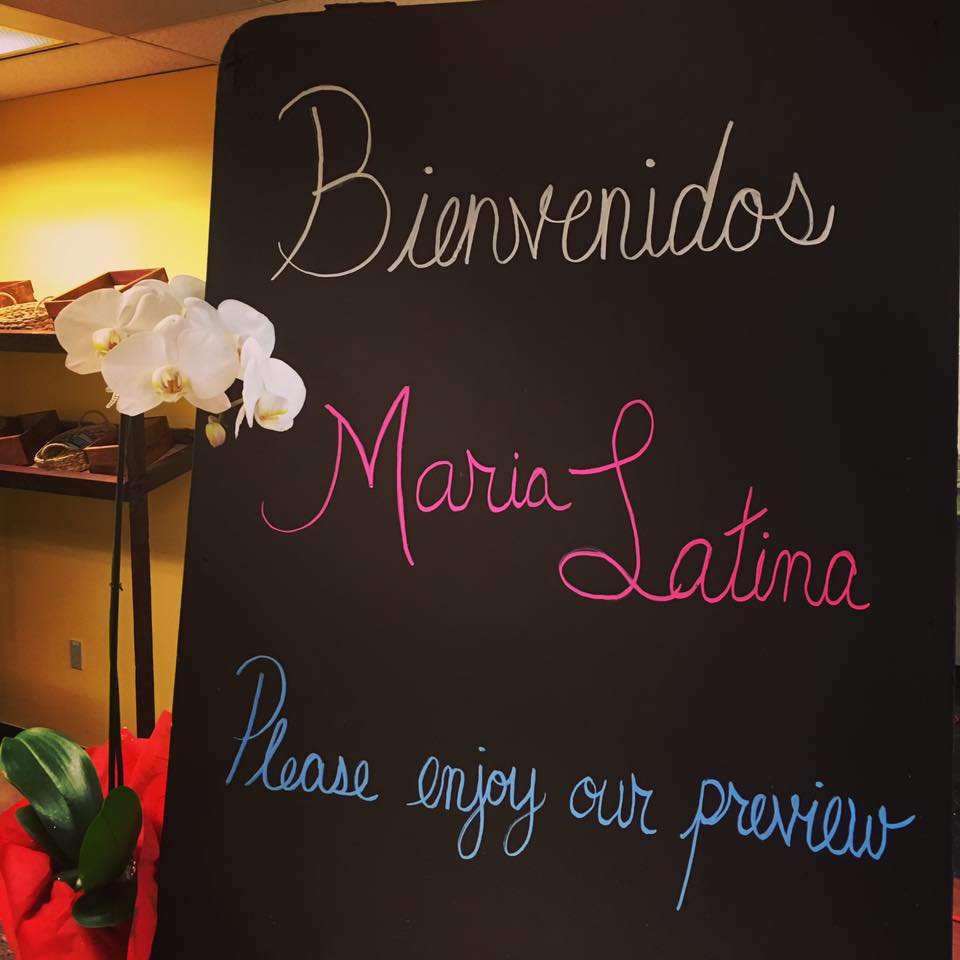 Bienvenidos
Maria Latina
Please enjoy our preview